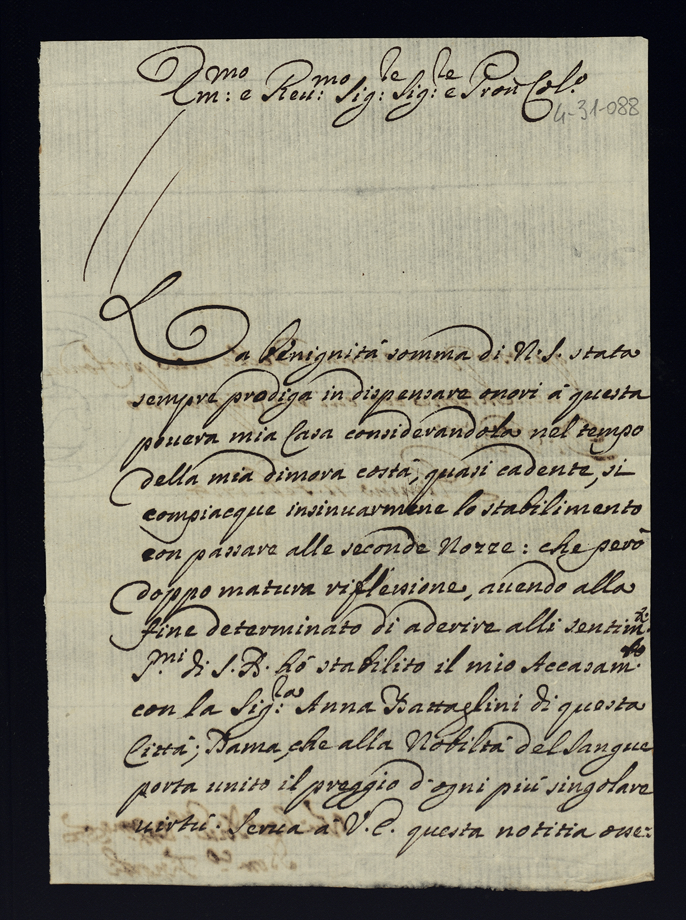 Em:mo e Reu:mo Sig:re Sig:re e Pron Col:o
4-31-088
La benignità somma di N. S. stata
sempre prodiga in dispensare onori à questa
pouera mia Casa considerandola nel tempo
della mia dimora costà, quasi cadente, si
compiacque insinuarmene lo stabilimento
con passare alle seconde Nozze: che però
doppo matura riflessione, auendo alla
fine determinato di aderire alli sentim:ti
S.mi di S. B. hò stabilito il mio Accasam:to
con la Sig:ra Anna Battaglini di questa
Città; Dama, che alla Nobiltà del Sangue
porta unito il preggio d'ogni più singolare
uirtù. Serua à V. E. questa notitia osse: